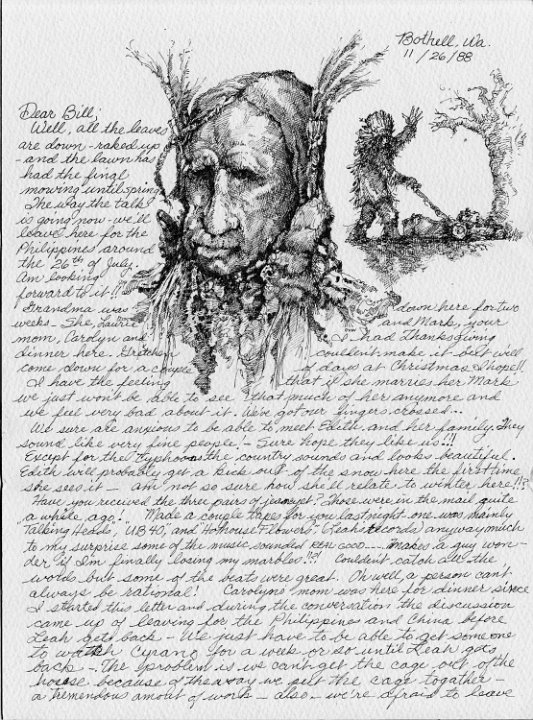 Bothell, Wa.
11/26/88
Dear Bill;
Well, all the leaves
are down - raked up
- and the lawn has
had the final
mowing until spring.
The way the talk
is going now - we'll
leave here for the
Philippines around
the 26th of July.
Am looking
forward to it!!!
Grandma was down here for two
weeks - She, Laurie and Mark, your
mom, Carolyn and I had Thanksgiving
dinner here. Gretchen couldn't make it - but will
come down for a couple of days at Christmas, I hope!!
I have the feeling that if she marries her Mark
we just won't be able to see that much of her anymore and
we feel very bad about it. We've got our fingers crossed...
We sure are anxious to be able to meet Edith and her family. They
sound like very fine people! - Sure hope they like us!!!
Except for the typhoons the country sounds and looks beautiful.
Edith will probably get a kick out of the snow here the first time
she sees it - am not so sure how she'll relate to winter here!!?
Have you received the three pairs of jeans yet? Those were in the mail quite
a while ago! Made a couple tapes for you last night - one was mainly
Talking Heads, UB 40, and Hothouse Flowers - (Leah's records) anyway much
to my surprise some of the music sounded REAL GOOD --- makes a guy won-
der if I'm finally losing my marbles?! Couldn't catch all the
words but some of the beats were great. Oh well, a person can't
always be rational! Carolyns mom was here for dinner since
I started this letter and during the conversation the discussion
came up of leaving for the Philippines and China before
Leah gets back - We just have to be able to get someone
to watch Cyrano for a week or so until Leah gets
back - The problem is we cant get the cage out of the
house because of the way we put the cage together -
a tremendous amout of work - also - we're afraid to leave